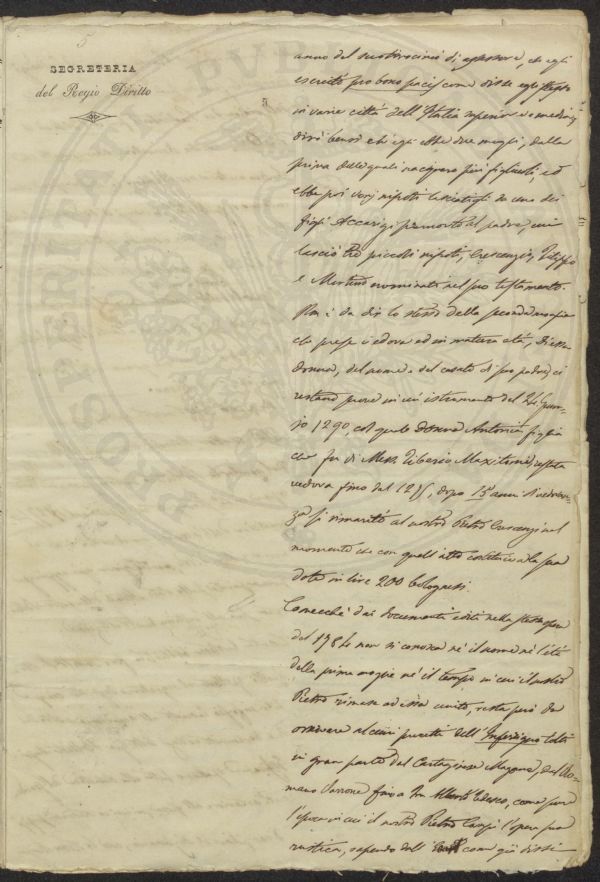 5
SEGRETERIA
del Regio Diritto
5
anno del suo tirocinio di assessore, che egli
esercitò pro bono pacis come disse egli stesso
in varie città dell' Italia superior e media,
dirò bensì che egli ebbe due mogli, dalla
prima delle quali nacquero più figliuoli, ed
ebbe poi varj nipoti lasciatigli da uno dei
figli Accarigi premorto al padre, cui
lasciò tre piccoli nipoti, Crescenzio, Filippo
e Martino nominati nel suo testamento.
Non è da dir lo stesso della seconda moglie
che prese vedova ed in matura età, Di essa
donna, del nome e del casato di suo padre, ci
restano prove in un istrumento del 24 Gen-
jo 1290, col quale donna Antonia figlia
che fu di Mess. Tiberio restata
vedova fino dal dopo 15 anni di vedovan-
za si rimaritò al nostro Pietro Crescenzi nel
momento che con quell' atto costituiva la sua
dote in lire 200 bolognesi.
Conecchè dai documenti editi nella stessa opera
del 1784 non si conosca nè il nome nè l'età
della prima moglie nè il tempo in cui il nostro
Pietro rimase ad essa unito, resta però da
osservare alcuni precetti dell' tolti
in gran parte dal Cartaginese Magone, dal Ro-
mano Varrone fino a Alberto tedesco, come pure
l'epoca in cui il nostro Pietro compì l'opera sua
rustica, sapendo dall' come già dissi